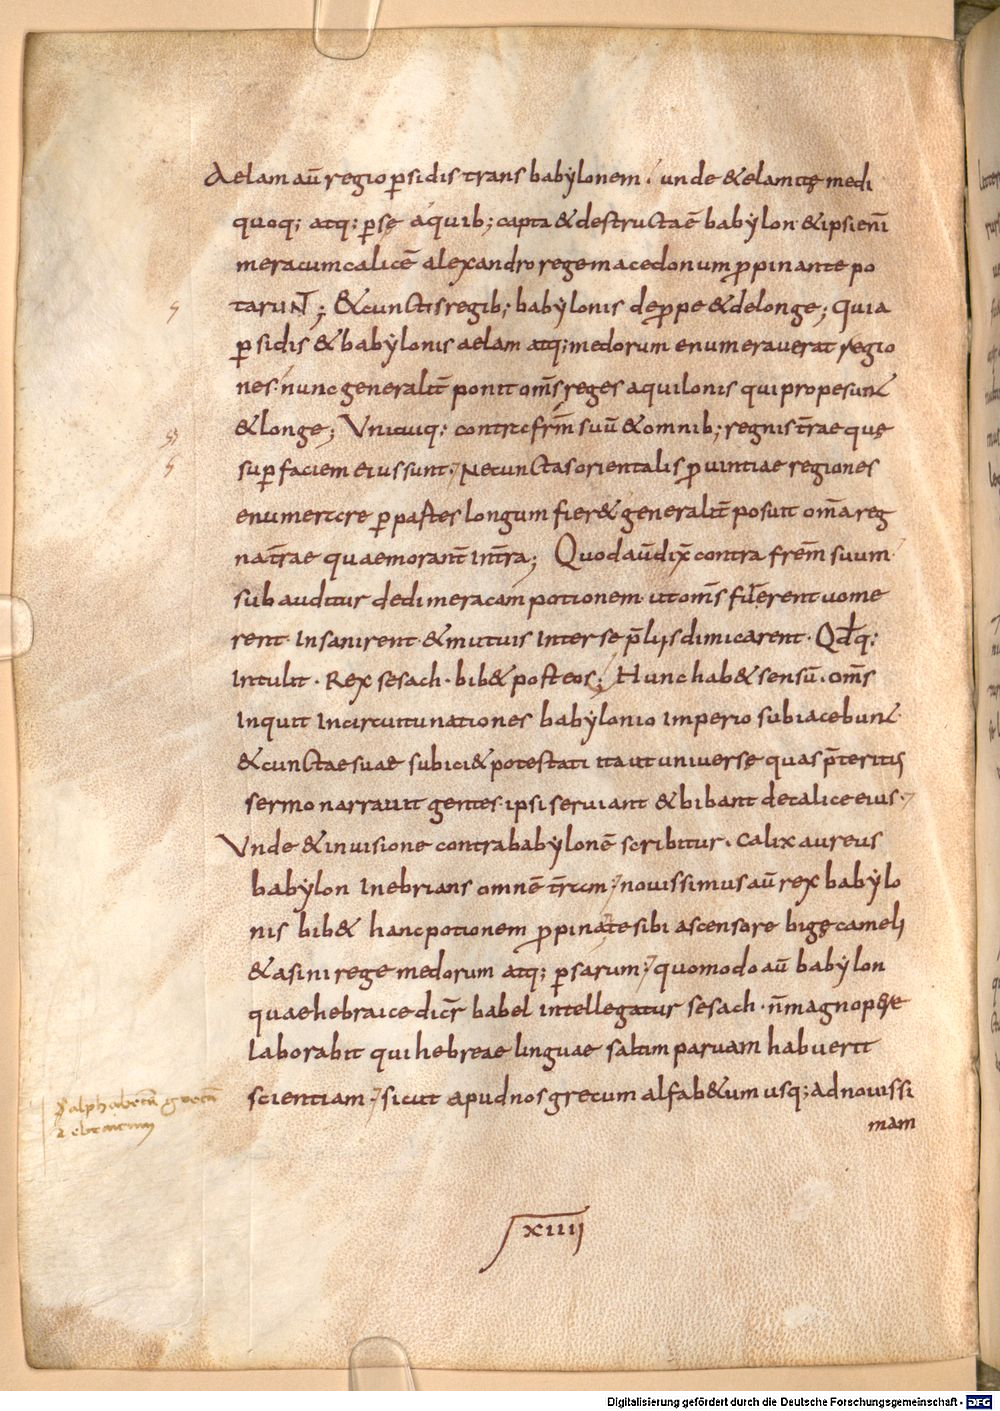 Aelam aū regio ꝑsidis trans babylonem. unde & elamitę medi
quoq; atq: ꝑsę a quib; capta & destructa ē babylon· & ipsi eni̅
meracum calicē alexandro rege macedonum ꝓpinante po
tarunt; & cunctis regib; babylonis de ꝓpe & de longe; Quia
ꝑsidis & babylonis aelam atq; medorum enumeraverat regio
nes· nunc generalit̅ ponit om̅s reges aquilonis qui prope sunt
& longe; Unicuiq: contra fr̅m suū & omnib; regnis t̅rae que
suꝑ faciem eius sunt; Ne cunctas orientalis ꝓvintiae regiones
enumerare ꝑ partes longum fier& generalit̅ posuit om̅a reg
na t̅rae quae morant̅ in t̅ra; Quod aū dix̅ contra fr̅em suum·
subauditur dedi meracam potionem· ut om̅s fu̅erent uome
rent· Insanirent & mutuis inter se p̅liis dimicarent· Qđq;
intulit· Rex sesach· bib& post eos; Hunc hab& sensū· om̅s
inquit in circuitu nationes babylonio imperio subiacebunt·
& cunctae suae subici& potestati ita ut universę quas p̅teritis
sermo narravit gentes· ipsi serviant & bibant de calice eius·
Unde & in uisione contra babylonē scribitur· Calix aureus
babylon inebrians omnē t̅ram; novissimus aū rex babylo
nis bib& hanc potionem ꝓpinate sibi ascensore bigę cameli
& asini rege medorum atq; ꝑsarum; quomodo aū babylon
quae hebraice dic̅r babel intellegatur sesach· n̅ magnopere
laborabit qui hebreae linguae saltim parvam habuerit
scientiam; sicut apud nos grecum alfab&um usq; ad novissi
mam
alphabetū grecū
& ebraicum
xiiii
Digitalisierung gefördert durch die Deutsche Forschungsgemeinschaft - DFG